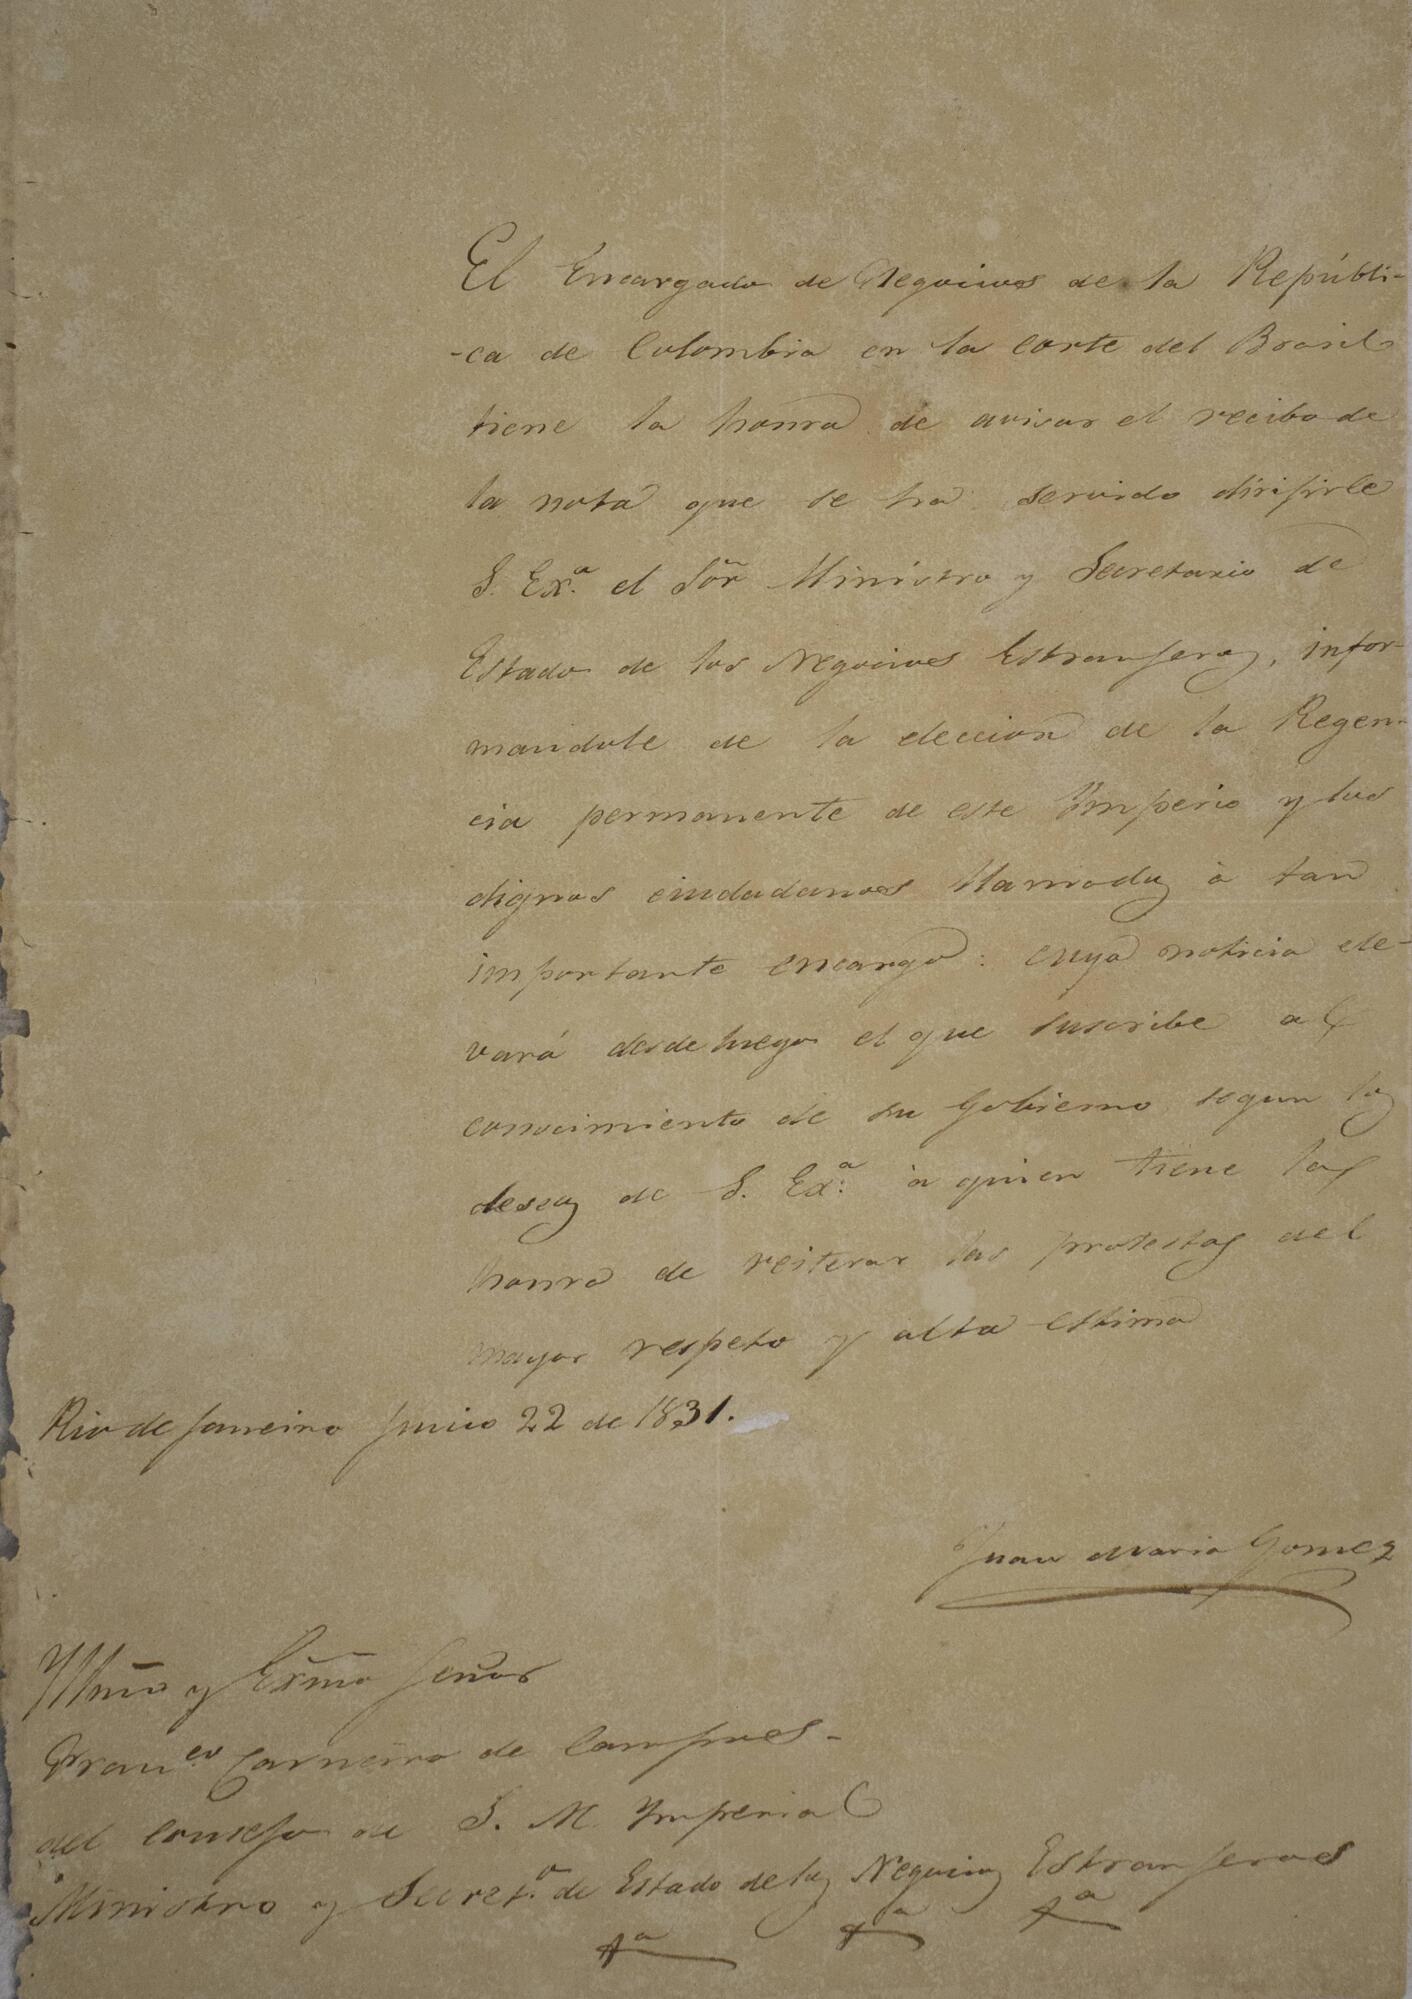 El Encargado de Negocios de la Repúbli-
-ca de Colombia en la corte del Brasil
tiene la honra de avisar el recibo de
la nota que se ha servido dirijirle
S. Ex.ª el Sõr Ministro y Secretario de
Estado de los Negocios Estranjeros, infor-
mandole de la eleccion de la Regen-
cia permanente de este Ymperio y los
dignos ciudadanos llamados à tan
importante encargo: cuya noticia ele-
vará desde luego el que suscribe al
conocimiento de su Gobierno segun los
deseos de S. Ex.ª à quien tiene la
honra de reiterar las protestas del
mayor respeto y alta estima
Rio de Janeiro Junio 22 de 1831.
Juan Maria Gomez
Yllmõ y Exmõ Señor
Franco Carneiro de Campos-
del Consejo de S. M. Ymperial
Ministro y Secret.º de Estado de los Negocios Estranjeros